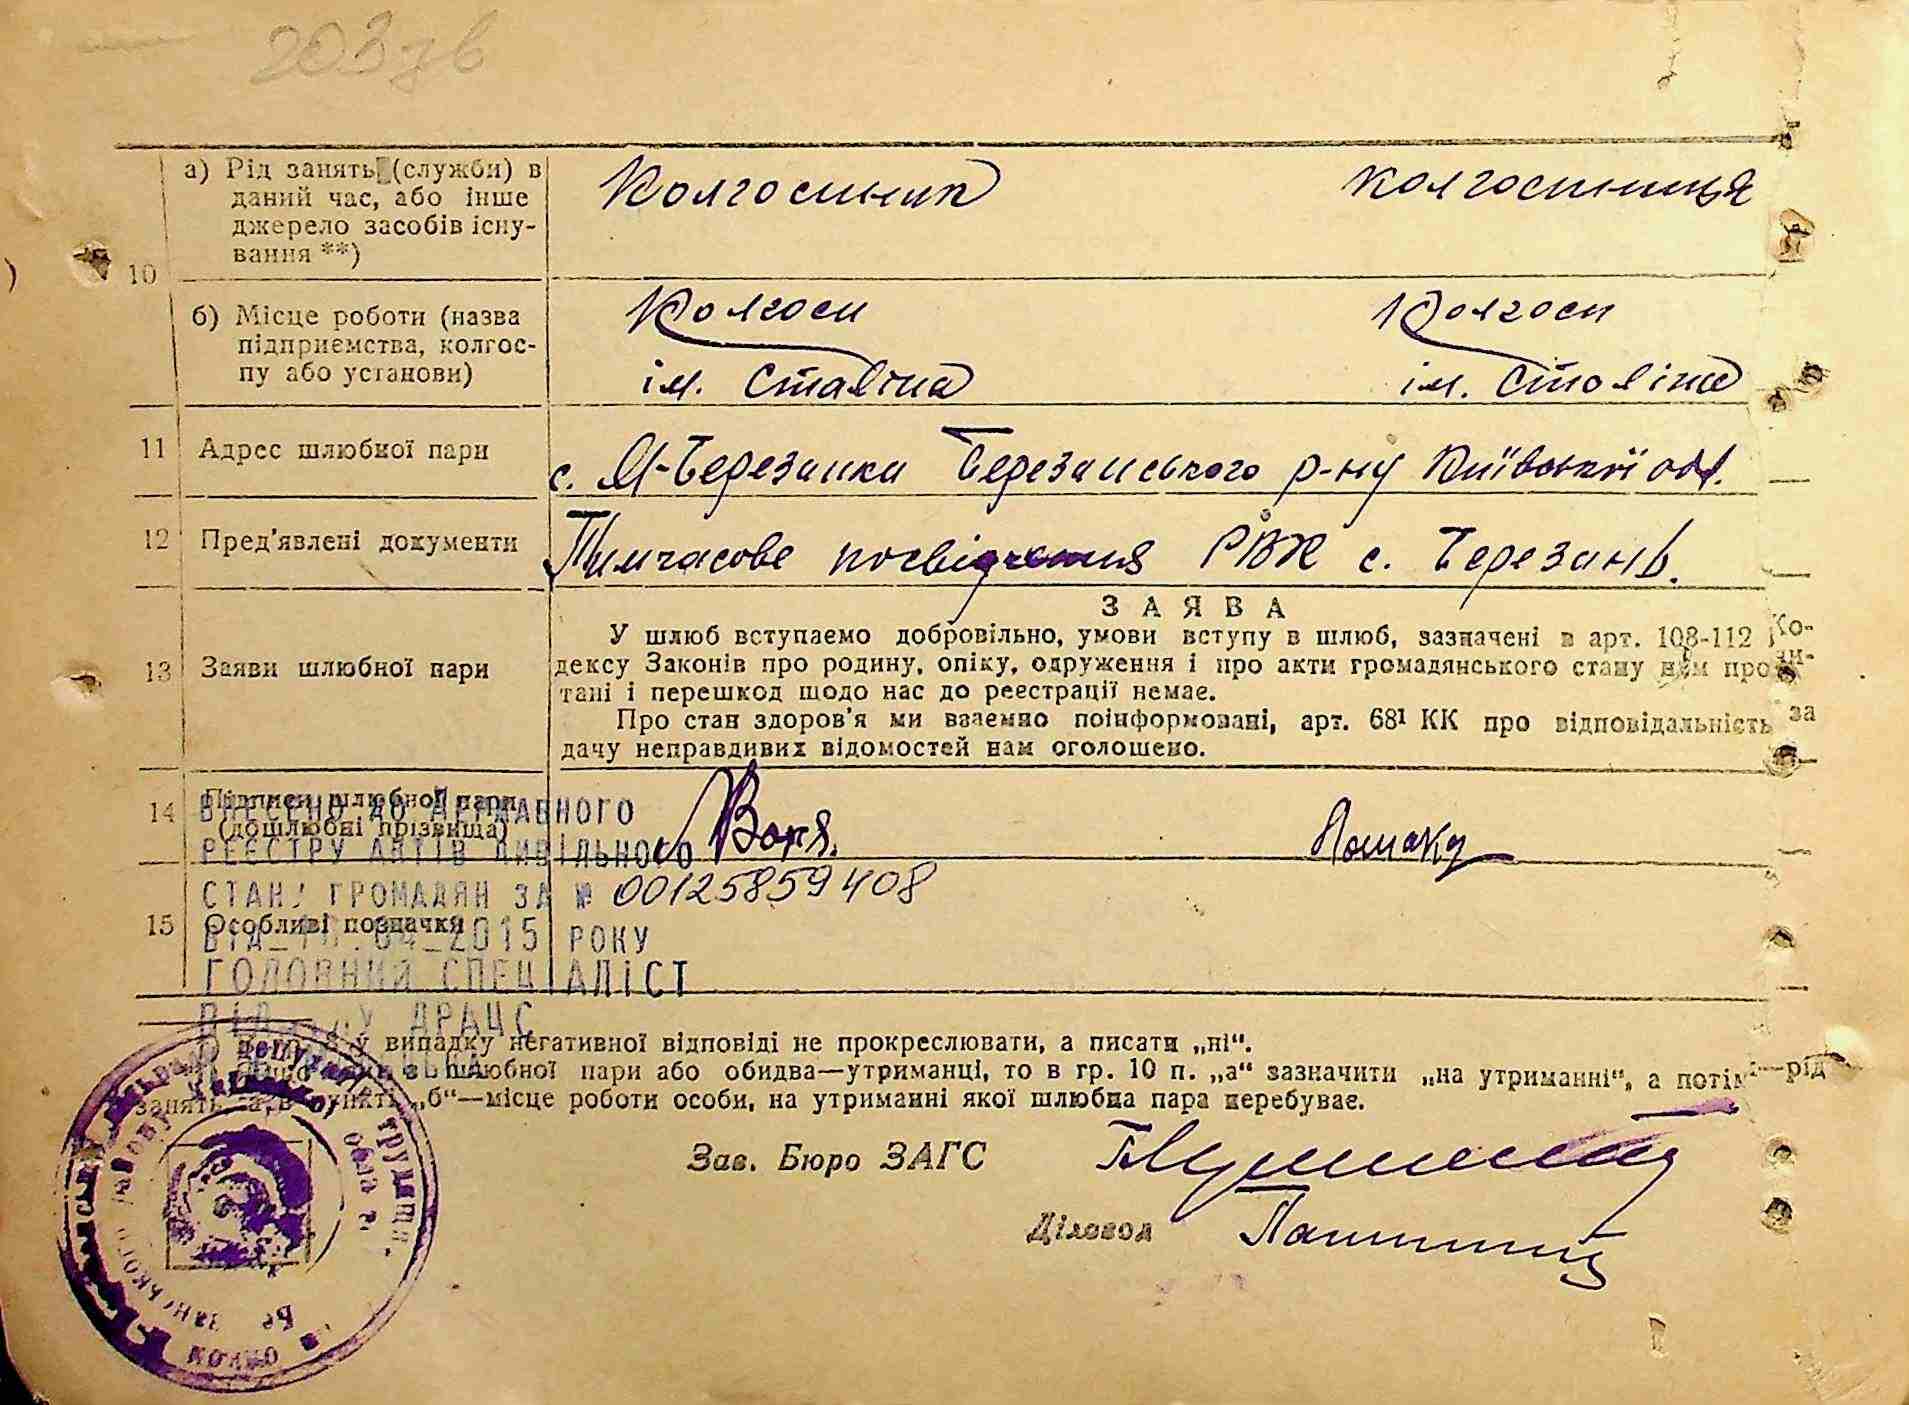 203 зв
10
а) Рід занять (служби) в
даний час, або інше
джерело засобів існу-
вання **)
Колгоспник
колгоспниця
б) Місце роботи (назва
підприємства, колгос-
пу або установи)
Колгосп
ім. Сталіна
Колгосп
ім. Сталіна
11 Адрес шлюбної пари
с. М-Березанка Березанського р-ну Київської обл.
12 Пред'явлені документи
Тимчасове посвідчення РВК с. Березань.
13 Заяви шлюбної пари
ЗАЯВА
У шлюб вступаємо добровільно, умови вступу в шлюб, зазначені в арт. 108-112 Ко-
дексу Законів про родину, опіку, одруження і про акти громадянського стану нам прочи-
тані і перешкод щодо нас до реєстрації немає.
Про стан здоров'я ми взаємно поінформовані, арт. 68¹ КК про відповідальність за
дачу неправдивих відомостей нам оголошено.
14 Підписи шлюбної пари
(дошлюбні прізвища)
ВНЕСЕНО ДО ДЕРЖАВНОГО
РЕЄСТРУ АКТІВ ЦИВІЛЬНОГО
СТАНУ ГРОМАДЯН ЗА № 00125859408
15 Особливі позначки
2015 РОКУ
ГОЛОВНИЙ СПЕЦІАЛІСТ
ВІДДІЛУ ДРАЦС
у випадку негативної відповіді не прокреслювати, а писати „ні“.
шлюбної пари або обидва—утриманці, то в гр. 10 п. „а“ зазначити „на утриманні“, а потім—рід
занять, а в пункті „б“—місце роботи особи, на утриманні якої шлюбна пара перебуває.
Зав. Бюро ЗАГС
Діловод